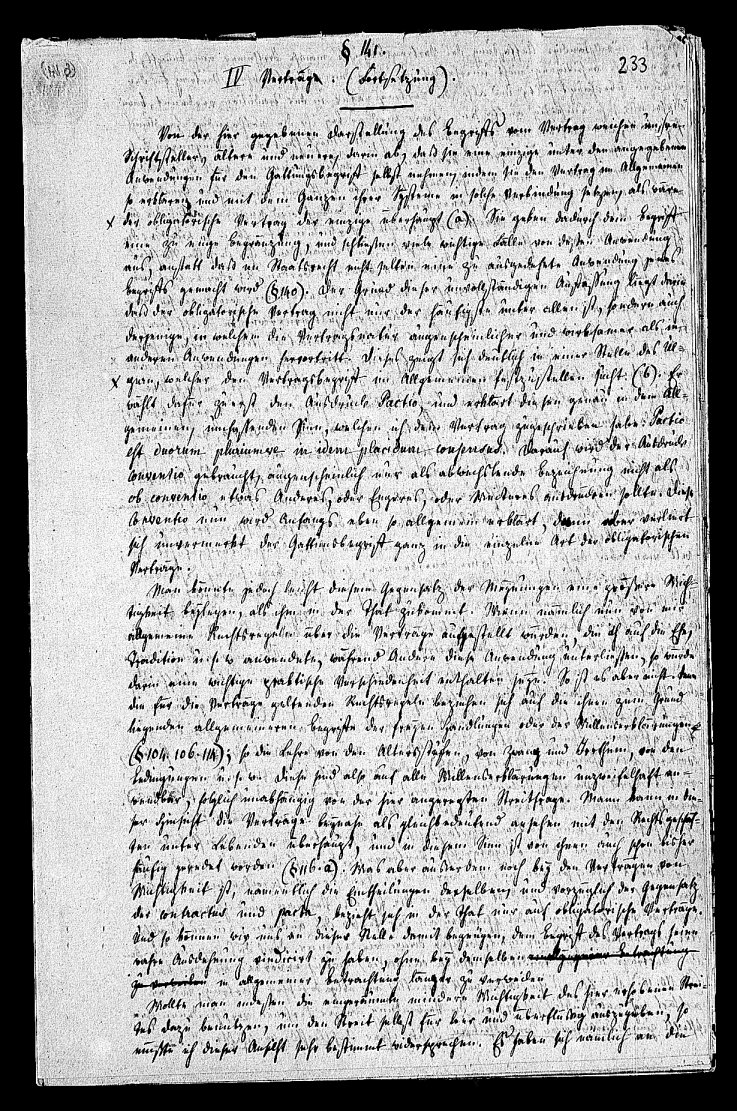 § 141.
233
IV Verträge. (Fortsetzung).
Von der hier gegebenen Darstellung des Begriffs vom Vertrag weichen unsre
Schriftsteller, ältere und neuere, darin ab, daß sie eine einzige unter den angegebenen
Anwendungen für den Gattungsbegriff selbst nehmen, indem sie den Vertrag im Allgemeinen
so erklären, und mit dem Ganzen ihrer Systeme in solche Verbindung setzen, als wäre
der obligatorische Vertrag der einzige überhaupt (a). Sie geben dadurch dem Begriff
eine zu enge Begränzung, und schließen viele wichtige Fälle von dessen Anwendung
aus, anstatt daß im Staatsrecht nicht selten eine zu ausgedehnte Anwendung jenes
Begriffs gemacht wird (§ 140). Der Grund dieser unvollständigen Auffassung liegt darin
daß der obligatorische Vertrag nicht nur der häufigste unter allen ist, sondern auch
derjenige, in welchem die Vertragsnatur augenscheinlicher und wirksamer als in
anderen Anwendungen hervortritt. Dieses zeigt sich deutlich in einer Stelle des Ul-
pian, welcher den Vertragsbegriff im Allgemeinen festzustellen sucht (b). Er
wählt dafür zuerst den Ausdruck Pactio, und erklärt diesen genau in dem All-
gemeinen, umfassenden Sinn, welchen ich dem Vertrag zugeschrieben habe: Pactio
est duorum pluriumve in idem placitum consensus. Darauf wird der Ausdruck
conventio gebraucht, augenscheinlich nur als abwechslende Bezeichnung nicht als
ob conventio etwas Anderes, oder Engeres, oder Weiteres ausdrücken sollte. Diese
Conventio nun wird Anfangs eben so allgemein erklärt, dann aber verliert
sich unvermerkt der Gattungsbegriff ganz in die einzelne Art der obligatorischen
Verträge.
Man könnte jedoch leicht diesem Gegensatz der Meynungen eine größere Wich-
tigkeit beylegen, als ihm in der That zukommt. Wenn nämlich nun von mir
allgemeine Rechtsregeln über die Verträge aufgestellt würden, die ich auf die Ehe,
Tradition u. s. w. anwendete, während Andere diese Anwendung unterließen, so würde
darin eine wichtige praktische Verschiedenheit enthalten seyn. So ist es aber nicht denn
die für die Verträge geltenden Rechtsregeln beziehen sich auf die ihnen zum Grund
liegenden allgemeineren Begriffe der freyen Handlungen oder der Willenserklärungen
(§ 104. 106. 114); so die Lehre von den Altersstufen, von Zwang und Irrthum, von den
Bedingungen u. s. w. Diese sind also auf alle Willenserklärungen unzweifelhaft an-
wendbar, folglich unabhängig von der hier angeregten Streitfrage. Man kann in die-
ser Hinsicht die Verträge beynahe als gleichbedeutend ansehen mit den Rechtsgeschäf-
ten unter Lebenden überhaupt, und in diesem Sinn ist von ihnen auch schon bisher
häufig geredet worden (§ 116. a). Was aber außerdem noch bey den Verträgen von
Wichtigkeit ist, namentlich die Eintheilungen derselben, und vorzüglich der Gegensatz
der contractus und pacta, bezieht sich in der That nur auf obligatorische Verträge.
Und so können wir uns an dieser Stelle damit begnügen, dem Begriff des Vertrags seine
wahre Ausdehnung vindicirt zu haben, ohne bey demselben
zu verweilen in allgemeiner Betrachtung länger zu verweilen.
Wollte man indessen die eingeräumte mindere Wichtigkeit des hier erhobenen Strei-
tes dazu benutzen, um den Streit selbst für leer und überflüssig auszugeben, so
müßte ich dieser Ansicht sehr bestimmt widersprechen. Es haben sich nämlich an die